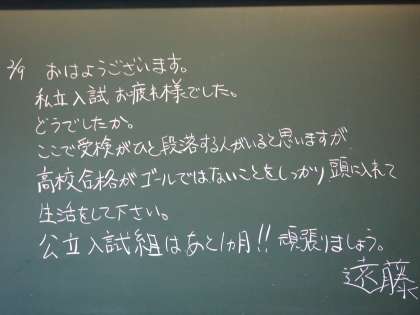 2/9 おはようございます。
私立入試お疲れ様でした。
どうでしたか。
ここで受検がひと段落する人がいると思いますが
高校合格がゴールではないことをしっかり頭に入れて
生活をして下さい。
公立入試組はあと1ヵ月!!頑張りましょう。
遠藤